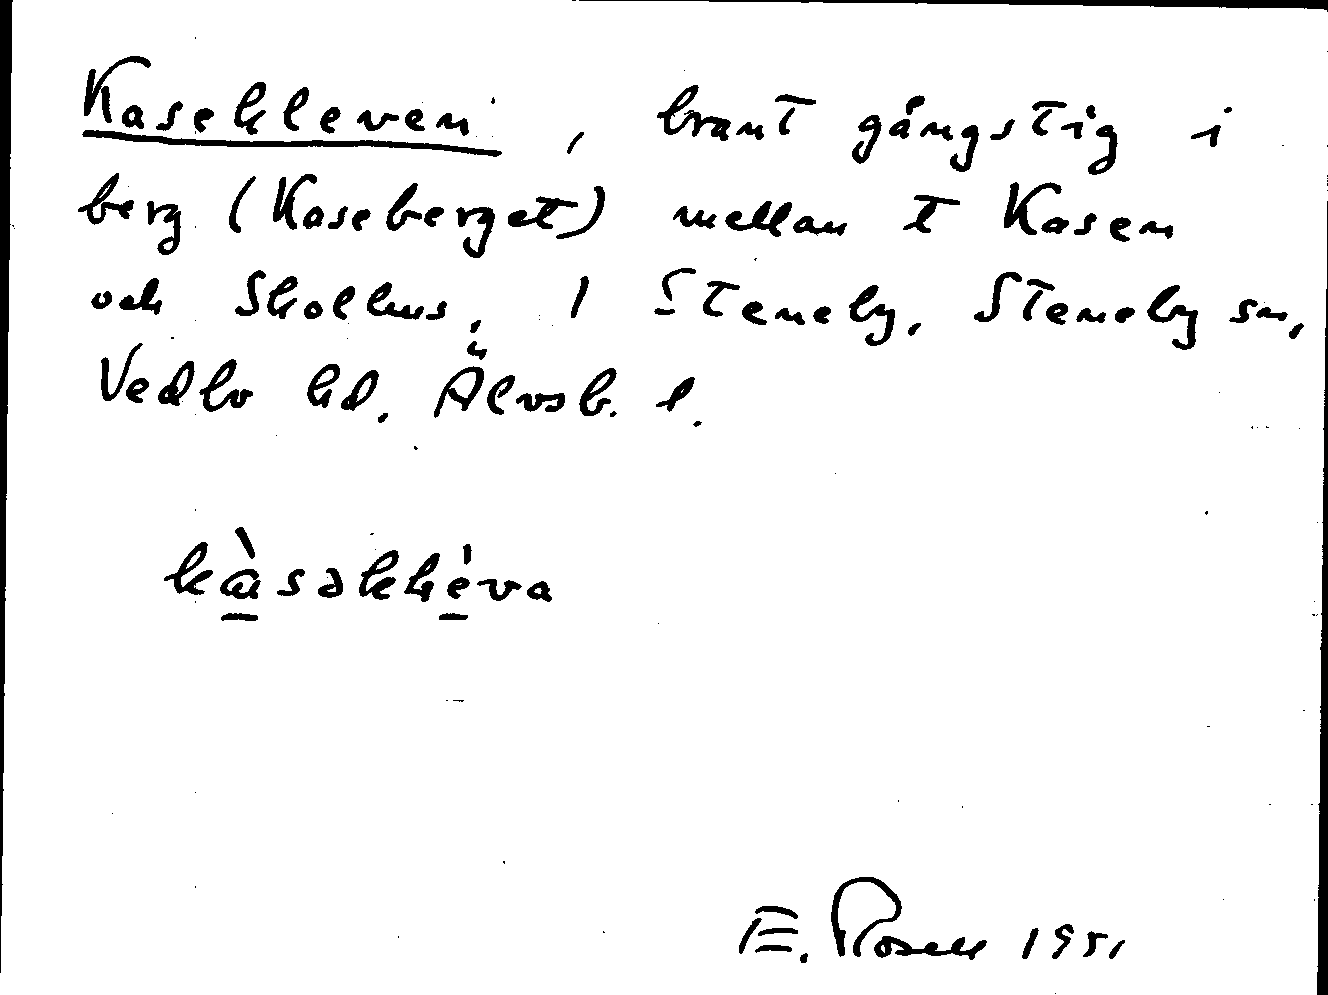 Kasekleven, brant gångstig i
berg (Kaseberget) mellan t Kasen
och Skolhus, 1 Steneby, Steneby sn,
Vedbo hd. Älvsb. l.
E. Rosell 1951